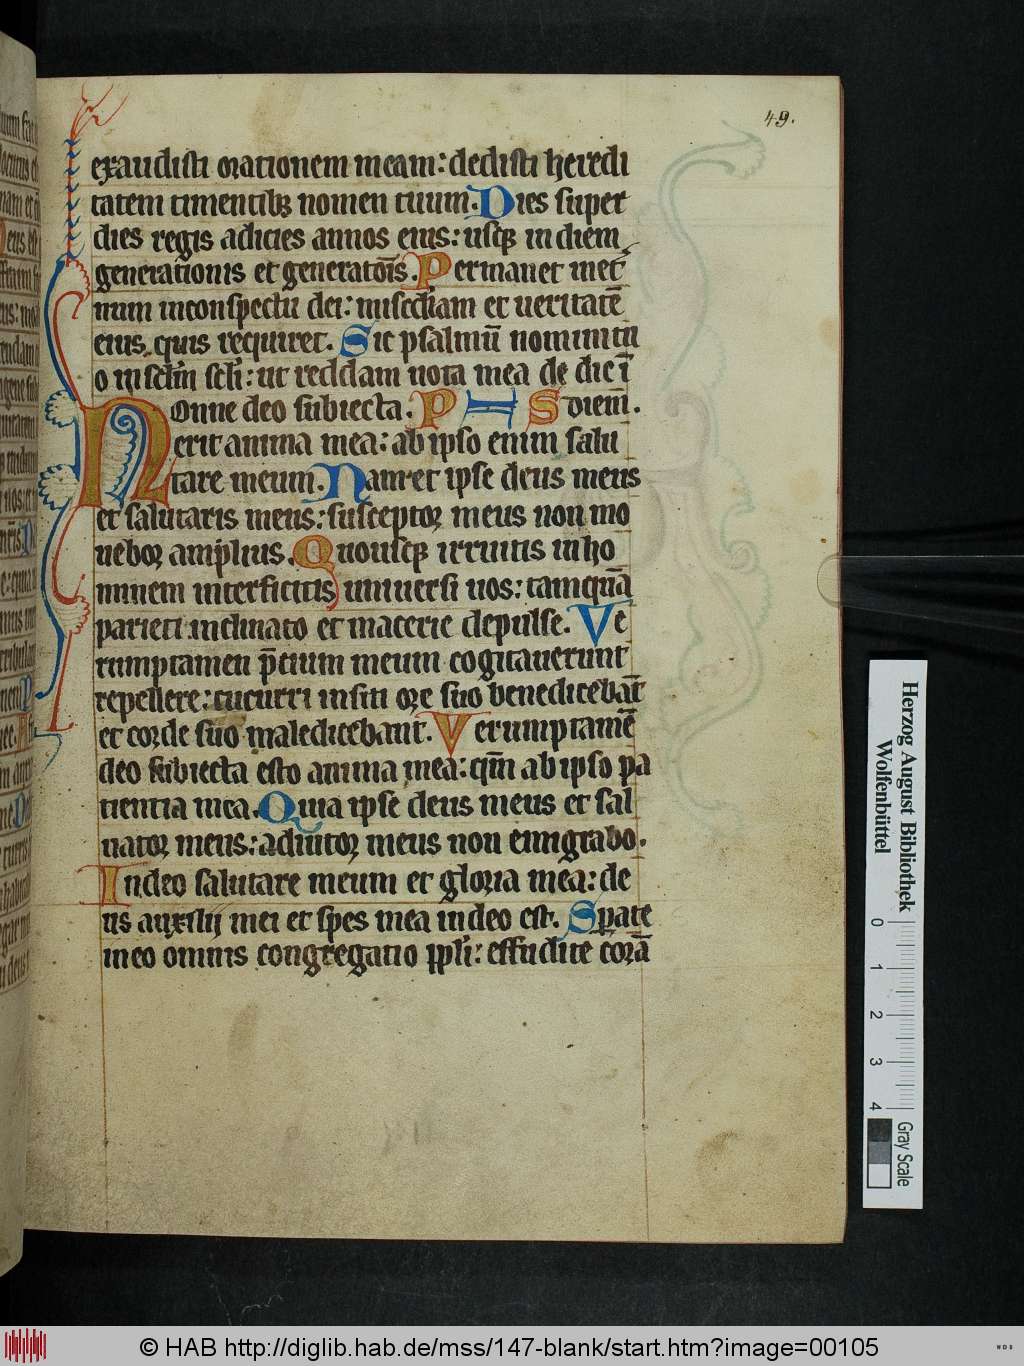 49.
exaudisti orationem meam: dedisti heredi
tatem timentibꝫ nomen tuum. Dies super
dies regis adicies annos eius: usqꝫ in diem
generationis et generatõis. Permanet in et
num in conspectu dei: miscdiam et ueritatē
eius quis requiret. Sic psalmū nomini tu
o in sclm scli: ut reddam uota mea de die ī
Nonne deo subiecta. PHS diem̄.
erit anima mea: ab ipso enim salu
tare meum. Nam et ipse deus meus
et salutaris meus: susceptor meus non mo
uebor amplius. Quousqꝫ irruitis in ho
minem interficitis uniuersi uos: tamquā
parieti inclinato et macerie depulse. Ve
rumptamen p̄cium meum cogitauerunt
repellere: cucurri in siti ore suo benedicebāt
et corde suo maledicebant. Verumptamē
deo subiecta esto anima mea: qm̄ ab ipso pa
tientia mea. Quia ipse deus meus et sal
uator meus: adiutor meus non emigrabo.
In deo salutare meum et gloria mea: de
us auxilij mei et spes mea in deo est. Sperate
in eo omnis congregatio ppli: effudite corā
Herzog August Bibliothek
Wolfenbüttel
0 1 2 3 4
Gray Scale
© HAB http://diglib.hab.de/mss/147-blank/start.htm?image=00105